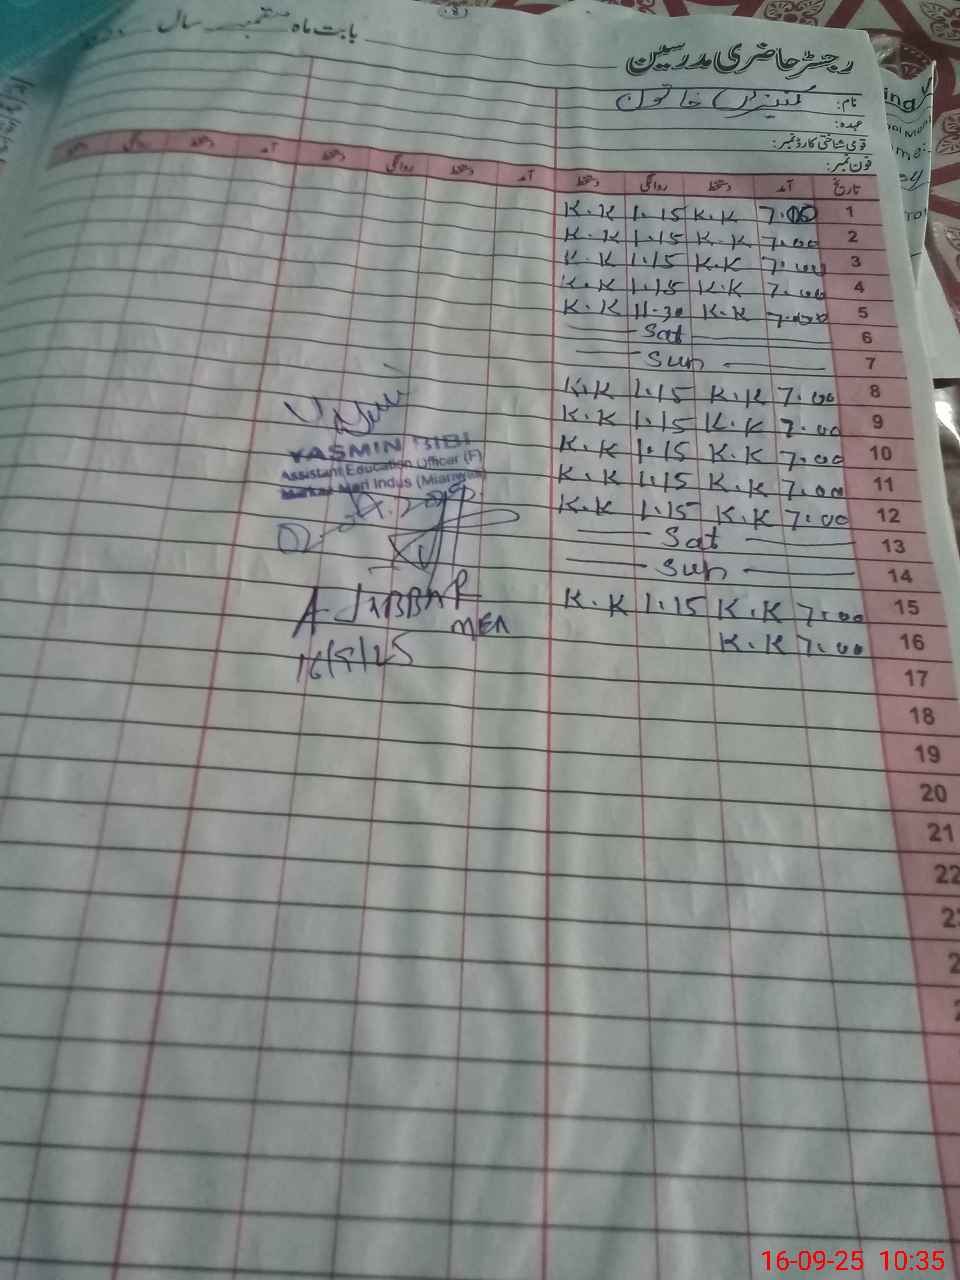 (8)
بابت ماہ ستمبر سال
رجسٹر حاضری مدرسین
نام: کنیز خاتون
عہدہ:
قومی شناختی کارڈ نمبر:
فون نمبر:
تاریخ آمد دستخط روانگی دستخط آمد دستخط روانگی دستخط آمد دستخط روانگی دستخط
1 7.00 K.K 1.15 K.K
2 7.00 K.K 1.15 K.K
3 7.00 K.K 1.15 K.K
4 7.00 K.K 1.15 K.K
5 7.00 K.K 11.30 K.K
6 Sat
7 Sun
8 7.00 K.K 1.15 K.K
9 7.00 K.K 1.15 K.K
10 7.00 K.K 1.15 K.K
11 7.00 K.K 1.15 K.K
12 7.00 K.K 1.15 K.K
13 Sat
14 Sun
15 7.00 K.K 1.15 K.K
16 7.00 K.K
17
18
19
20
21
22
YASMIN BIBI
Assistant Education Officer (F)
Markaz Mari Indus (Mianwali)
A JABBAR
MEA
16/9/25
16-09-25 10:35